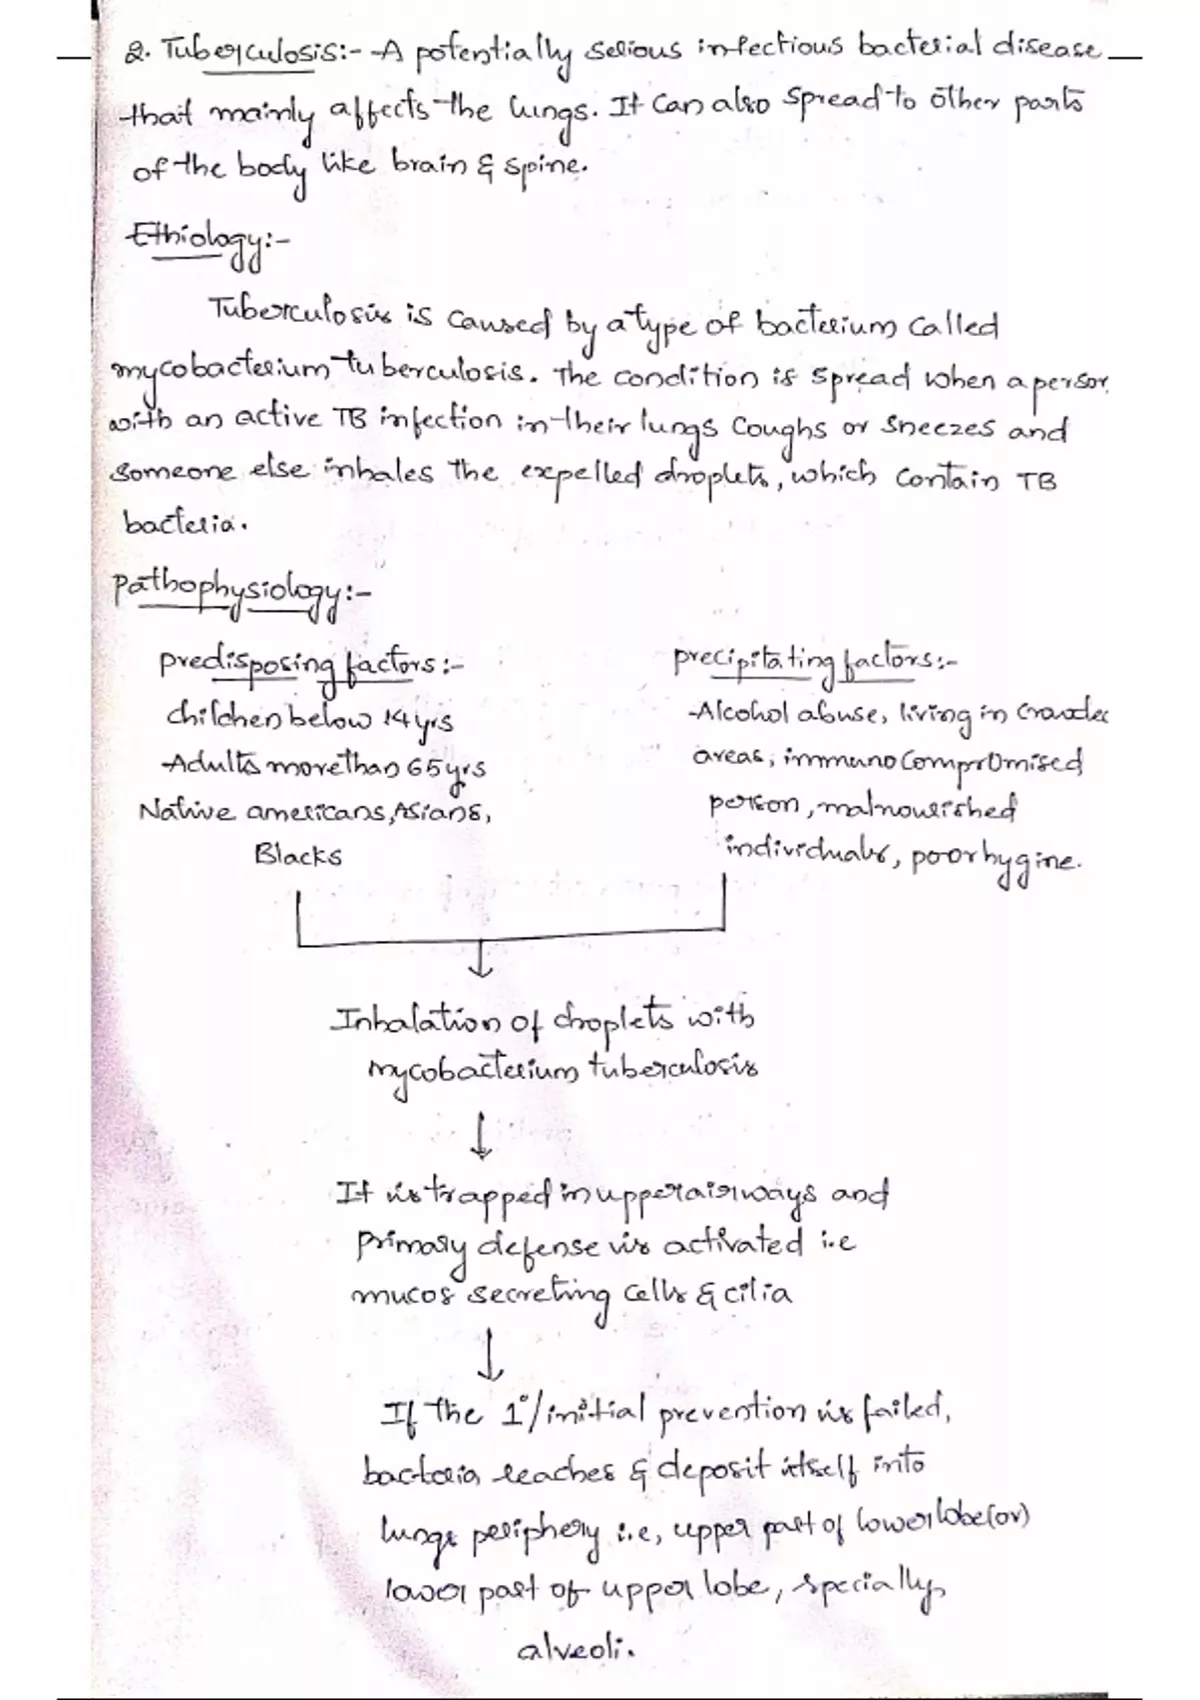 2. Tuberculosis:- A potentially serious infectious bacterial disease
that mainly affects the lungs. It can also spread to other parts
of the body like brain & spine.
Ethiology:-
Tuberculosis is caused by a type of bacterium called
mycobacterium tuberculosis. The condition is spread when a person
with an active TB infection in their lungs coughs or sneezes and
someone else inhales the expelled droplets, which contain TB
bacteria.
Pathophysiology:-
predisposing factors:-
children below 14 yrs
Adults more than 65 yrs
Native americans, Asians,
Blacks
precipitating factors:-
Alcohol abuse, living in crowded
areas, immuno compromised
person, malnourished
individuals, poor hygine.
Inhalation of droplets with
mycobacterium tuberculosis
It is trapped in upper airways and
primary defense is activated i.e
mucos secreting cells & cilia
If the 1°/initial prevention is failed,
bacteria reaches & deposit itself into
lungs periphery i.e, upper part of lower lobe (or)
lower part of upper lobe, specially
alveoli.